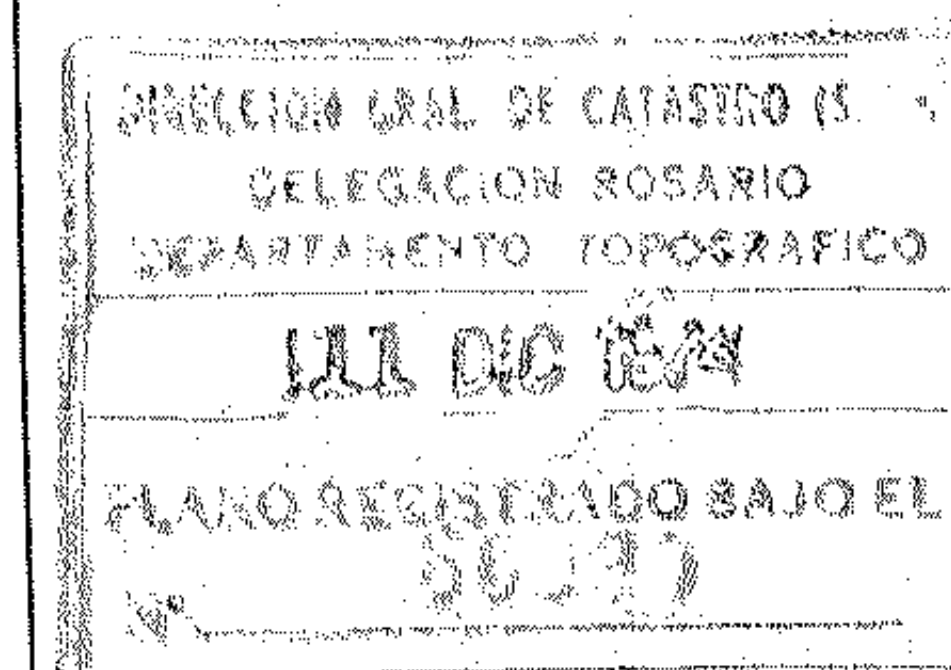 DIRECCION GRAL. DE CATASTRO (S.
DELEGACION ROSARIO
DEPARTAMENTO TOPOGRAFICO
11 DIC
PLANO REGISTRADO BAJO EL
Nº